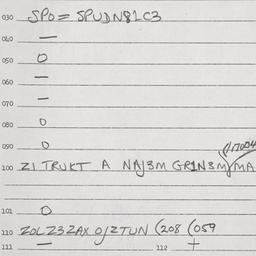 030 SPO = SPUDN81C3
040 —
050 O
060 —
070 —
080 O
090 O
100 ZI TRUKT A NAJ3M GR1N3M MA
101 O
110 ZOLZ3ZAX O/ZTUN (208 (059
111 — 112 +